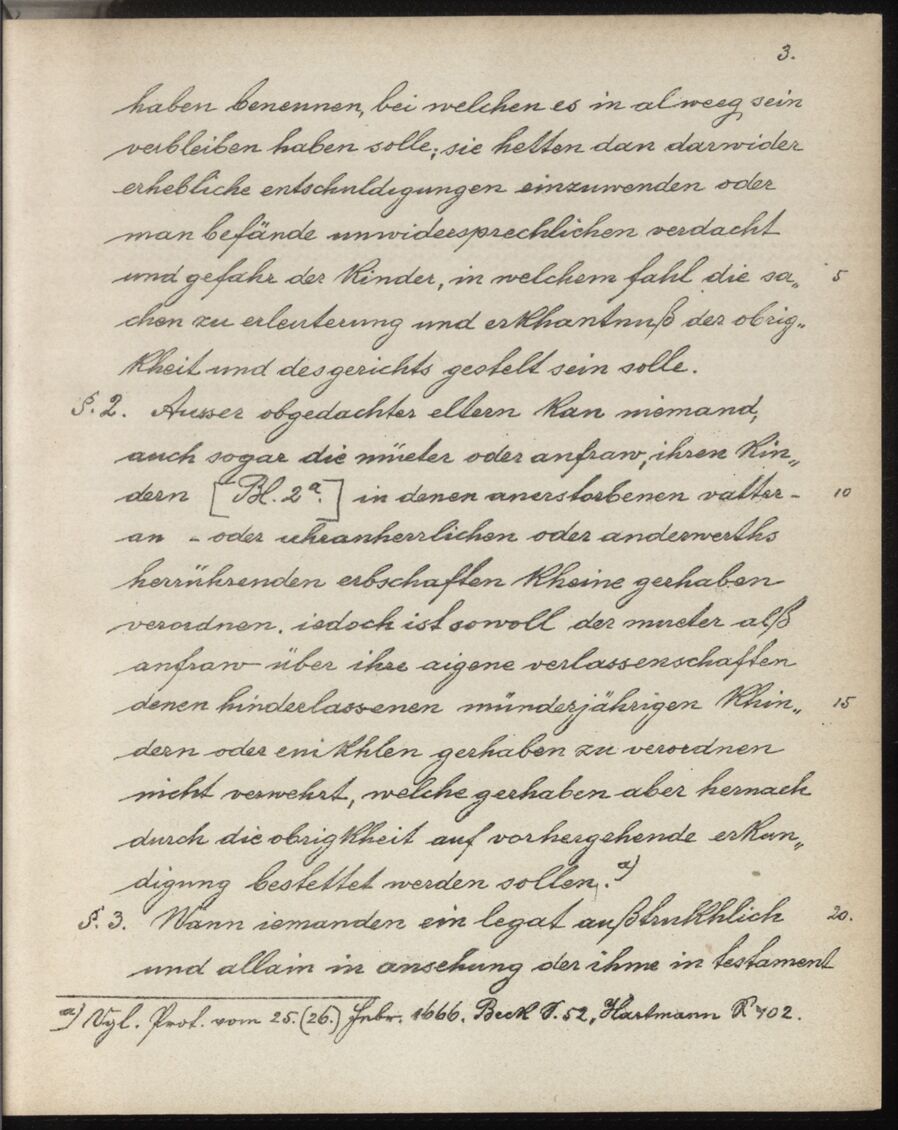 3.
haben benennen, bei welchen es in alweeg sein
verbleiben haben solle; sie hetten dan darwider
erhebliche entschuldigungen einzuwenden oder
man befände unwidersprechlichen verdacht
und gefahr der Kinder, in welchem fahl die sa„ 5
chen zu erleuterung und erkhantnuß der obrig„
kheit und des gerichts gestelt sein solle.
§. 2. Ausser obgedachter eltern kan niemand,
auch sogar die müeter oder anfraw, ihren kin„
dern [Bl. 2a.] in denen anerstorbenen vatter- 10
an - oder uhranherrlichen oder anderwerths
herrührenden erbschaften kheine gerhaben
verordnen. iedoch ist sowoll der mueter alß
anfraw über ihre aigene verlassenschaften
denen hinderlassenen münderjährigen khin„ 15
dern oder enikhlen gerhaben zu verordnen
nicht verwehrt, welche gerhaben aber hernach
durch die obrigkheit auf vorhergehende erkun„
digung bestettet werden sollen. a)
§. 3. Wann iemanden ein legat außtrukhlich 20.
und allain in ansehung der ihme in testament
a) Vgl. Prot. vom 25. (26.) Febr. 1666. Beck S. 52, Hartmann 702.